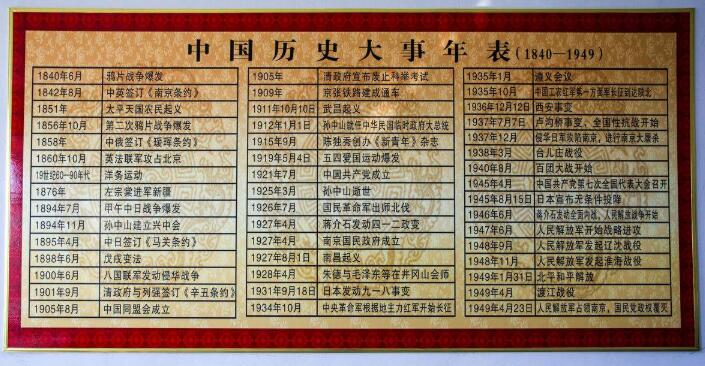 中国历史大事年表(1840—1949)
1840年6月 鸦片战争爆发
1842年8月 中英签订《南京条约》
1851年 太平天国农民起义
1856年10月 第二次鸦片战争爆发
1858年 中俄签订《瑷珲条约》
1860年10月 英法联军攻占北京
19世纪60—90年代 洋务运动
1876年 左宗棠进军新疆
1894年7月 甲午中日战争爆发
1894年11月 孙中山建立兴中会
1895年4月 中日签订《马关条约》
1898年6月 戊戌变法
1900年6月 八国联军发动侵华战争
1901年9月 清政府与列强签订《辛丑条约》
1905年8月 中国同盟会成立
1905年 清政府宣布废止科举考试
1909年 京张铁路建成通车
1911年10月10日 武昌起义
1912年1月1日 孙中山就任中华民国临时政府大总统
1915年9月 陈独秀创办《新青年》杂志
1919年5月4日 五四爱国运动爆发
1921年7月 中国共产党成立
1925年3月 孙中山逝世
1926年7月 国民革命军出师北伐
1927年4月 蒋介石发动四一二政变
1927年4月 南京国民政府成立
1927年8月1日 南昌起义
1928年4月 朱德与毛泽东等在井冈山会师
1931年9月18日 日本发动九一八事变
1934年10月 中央革命军根据地主力红军开始长征
1935年1月 遵义会议
1935年10月 中国工农红军第一方面军长征到达陕北
1936年12月12日 西安事变
1937年7月7日 卢沟桥事变、全国性抗战开始
1937年12月 侵华日军攻陷南京，进行南京大屠杀
1938年3月 台儿庄战役
1940年8月 百团大战开始
1945年4月 中国共产党第七次全国代表大会召开
1945年8月15日 日本宣布无条件投降
1946年6月 蒋介石发动全面内战，人民解放战争开始
1947年6月 人民解放军开始战略进攻
1948年9月 人民解放军发起辽沈战役
1948年11月 人民解放军发起淮海战役
1949年1月31日 北平和平解放
1949年4月 渡江战役
1949年4月23日 人民解放军占领南京，国民党政权覆灭